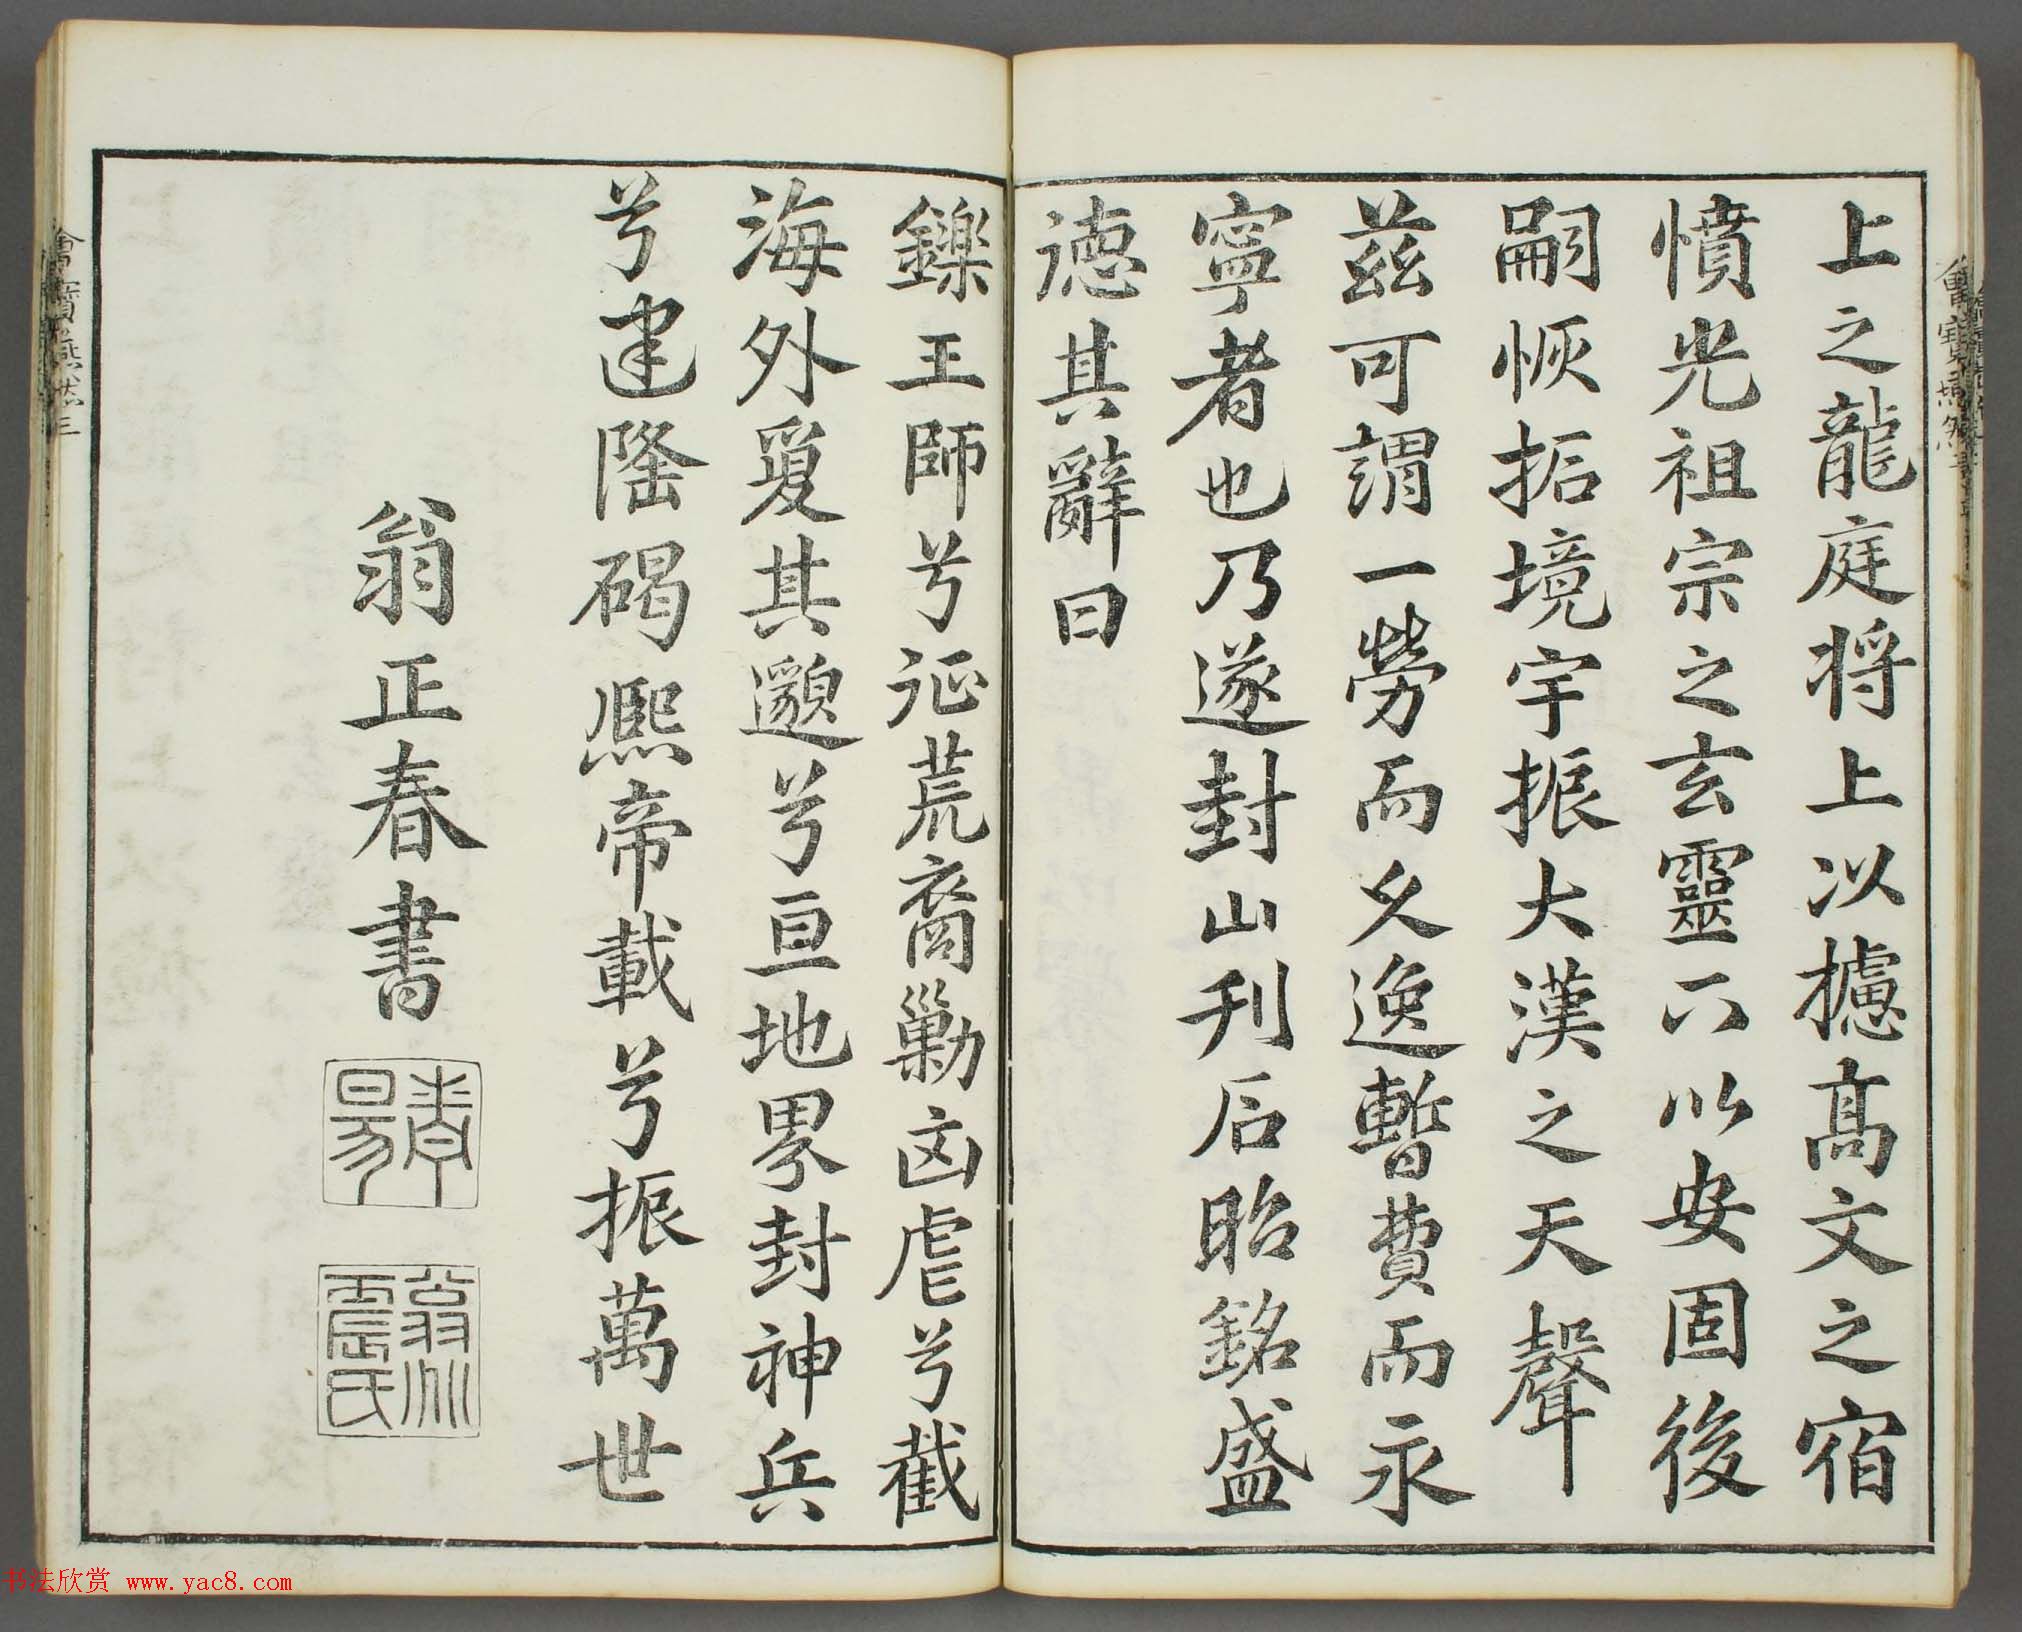 上之龍庭将上以攄髙文之宿
憤光祖宗之玄靈下以安固後
嗣恢拓境宇振大漢之天聲
兹可謂一勞而久逸暫費而永
寧者也乃遂封山刋石昭銘盛
德其辭曰
鑠王師兮征荒裔勦凶虐兮截
海外夐其邈兮亘地界封神兵
兮建隆碣熙帝載兮振萬世
翁正春書
青昜
翁兆震氏
书法欣赏 www.yac8.com